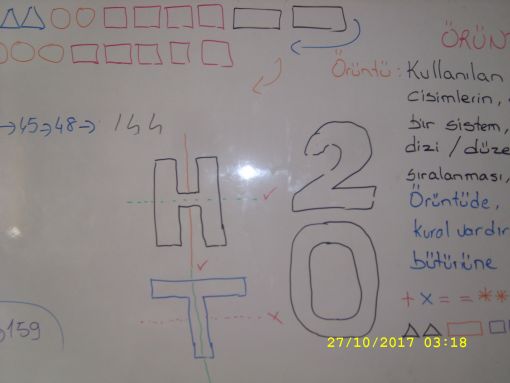 ÖRÜNT
Örüntü : Kullanılan
cisimlerin,
bir sistem,
dizi / düze
sıralanması,
Örüntüde,
kural vardır
bütürüne
+ x = = * *
→45→48→ 144
H
2
T
0
159
27/10/2017 03:18